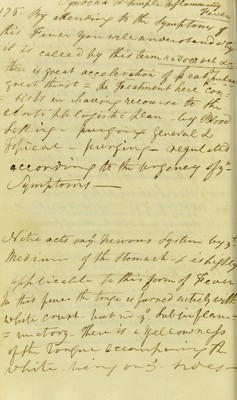 Synocha or Simple Inflammatory
Fever
175. By attending to the Symptoms of
this Fever you will understand why
it is called by this term as
there is great acceleration of pulse
great thirst = the Treatment here con
= sists in having recourse to the
Antiphlogistic plan - by Blood
letting - purging general &
topical - purging - regulated
according to the urgency of yᵉ
Symptoms —
Nitre acts on yᵉ nervous System by yᵉ
Medium of the Stomach & is highly
applicable to this form of Fever
In this fever the tongue is furred entirely with
white crust but in yᵉ Subinflam-
= matory there is a yellowness
of the tongue accompanying the
white being on yᵉ sides —